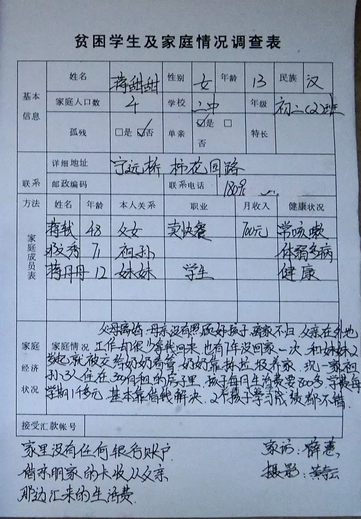 贫困学生及家庭情况调查表
基本信息 姓名 蒋甜甜 性别 女 年龄 13 民族 汉
家庭人口数 4 学校 二中 年级 初二(2)班
孤残 □是 ☑否 单亲 ☑是 □否 特长
联系方法 详细地址 宁远桥 柿花回路
邮政编码 联系电话 1809
家庭成员表 姓名 年龄 本人关系 职业 月收入 健康状况
蒋 48 父女 卖快餐 700元 常咳嗽
秀 71 祖孙 体弱多病
蒋丹丹 12 妹妹 学生 健康
家庭经济状况 家庭情况 父母离婚 母亲没有照顾好孩子 离家不归 父亲在外地
工作 也很少拿钱回来 也有1年没回家一次 和妹妹2
起就被交给奶奶看管 奶奶靠捡垃圾养家 现一家祖
孙3人住在 月租的房子里 孩子每月生活费要800多 学费每
学期1千多元 基本靠借钱解决 2个孩子学习成绩都不错
接受汇款帐号
家里没有任何银行账户
借亲朋家的卡收从父亲
那边汇来的生活费
家访：薛惠
摄影：黄云